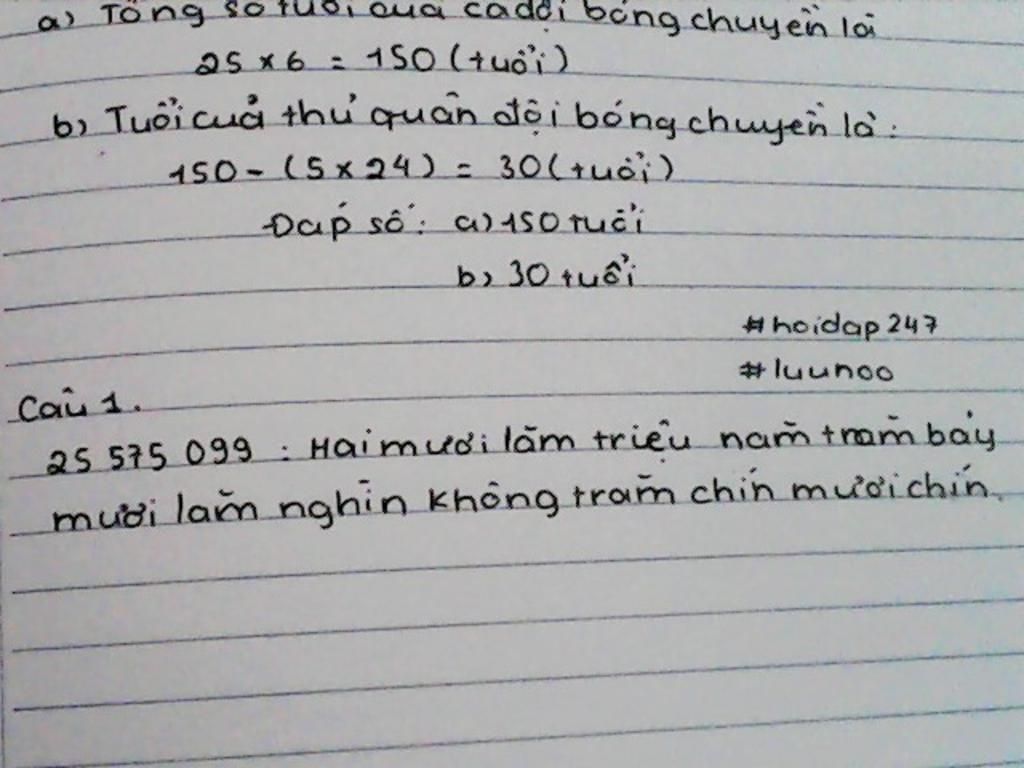 a) Tổng số tuổi của cả đội bóng chuyền là
25 x 6 = 150 (tuổi)
b) Tuổi của thủ quân đội bóng chuyền là:
150 - (5 x 24) = 30 (tuổi)
Đáp số: a) 150 tuổi
b) 30 tuổi
#hoidap247
#luunoo
Câu 1.
25 575 099 : Hai mươi lăm triệu năm trăm bảy
mươi lăm nghìn không trăm chín mươi chín.